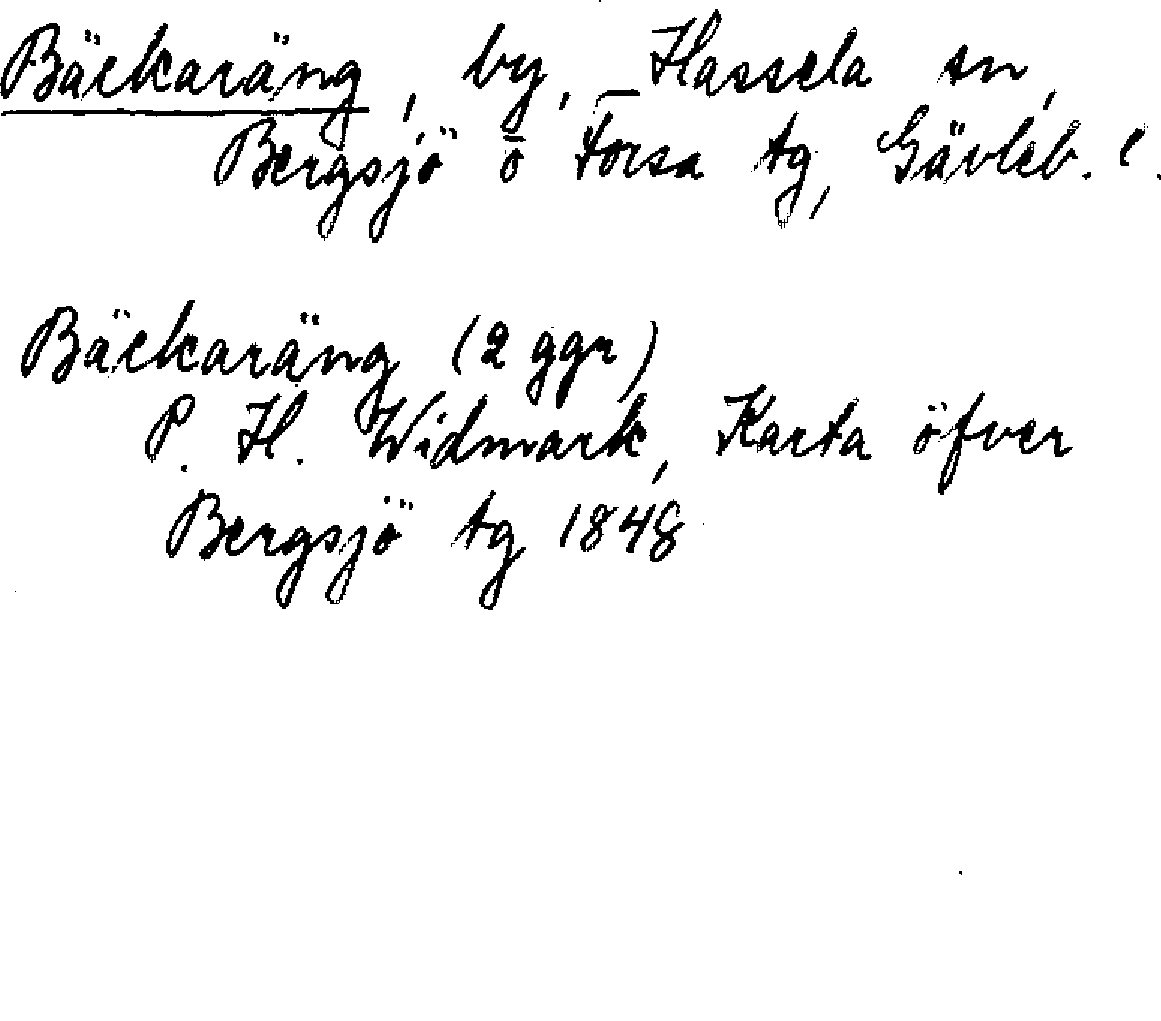 Bäckaräng, by, Hassela sn,
Bergsjö o Forsa tg, Gävleb. l.
Bäckaräng (2 ggr)
P. H. Widmark, Karta öfver
Bergsjö tg 1848